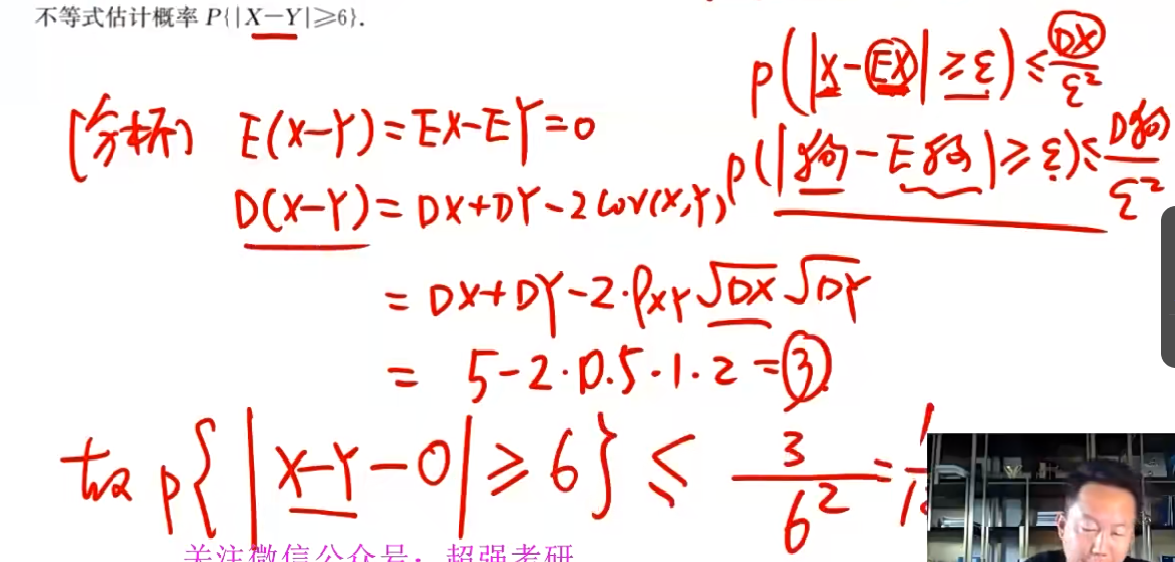 不等式估计概率 P{|X－Y|≥6}.
P(|X-EX|≥ε)≤DX/ε²
[分析] E(X-Y)=EX-EY=0
P(|狗-E狗|≥ε)≤D狗/ε²
D(X-Y)=DX+DY-2Cov(X,Y)
=DX+DY-2·ρXY√DX√DY
=5-2·0.5·1·2=③
故P{|X-Y-0|≥6}≤3/6²=
关注微信公众号：超强考研